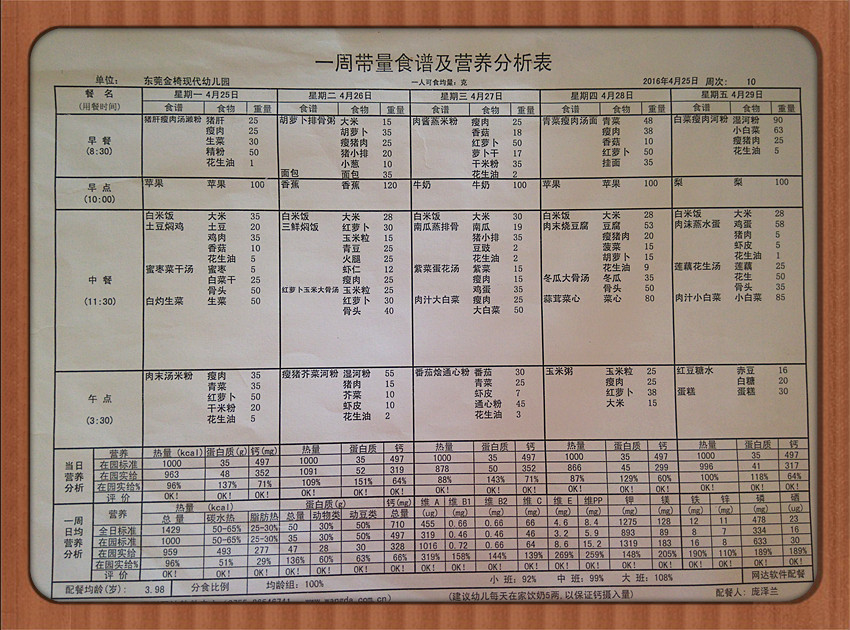 一周带量食谱及营养分析表
单位: 东莞金椅现代幼儿园 一人可食均量: 克 2016年4月25日 周次: 10
餐 名 星期一 4月25日 星期二 4月26日 星期三 4月27日 星期四 4月28日 星期五 4月29日
(用餐时间) 食谱 食物 重量 食谱 食物 重量 食谱 食物 重量 食谱 食物 重量 食谱 食物 重量
猪肝瘦肉汤濑粉 猪肝 25 胡萝卜排骨粥 大米 15 肉酱蒸米粉 瘦肉 25 青菜瘦肉汤面 青菜 48 白菜瘦肉河粉 湿河粉 90
瘦肉 25 胡萝卜 35 香菇 18 瘦肉 38 小白菜 63
早 餐 生菜 30 瘦猪肉 25 红萝卜 50 香菇 10 瘦猪肉 25
(8:30) 精粉 50 猪小排 20 萝卜干 17 红萝卜 50 花生油 5
花生油 1 小葱 10 干米粉 35 挂面 35
面包 面包 35 花生油 2
早 点 苹果 苹果 100 香蕉 香蕉 120 牛奶 牛奶 100 苹果 苹果 100 梨 梨 100
(10:00)
白米饭 大米 35 白米饭 大米 28 白米饭 大米 30 白米饭 大米 28 白米饭 大米 28
土豆焖鸡 土豆 20 三鲜焖饭 红萝卜 30 南瓜蒸排骨 南瓜 19 肉末烧豆腐 豆腐 53 肉沫蒸水蛋 鸡蛋 58
鸡肉 35 玉米粒 15 猪小排 35 瘦猪肉 20 猪肉 5
香菇 10 青豆 25 豆豉 2 菠菜 15 虾皮 5
花生油 5 火腿 25 花生油 2 胡萝卜 15 花生油 1
蜜枣菜干汤 蜜枣 5 虾仁 12 紫菜蛋花汤 紫菜 15 花生油 9 莲藕花生汤 莲藕 25
中 餐 白菜干 25 瘦肉 25 瘦肉 15 冬瓜大骨汤 冬瓜 35 花生 50
(11:30) 骨头 50 红萝卜玉米大骨汤 玉米粒 25 鸡蛋 35 骨头 50 骨头 35
白灼生菜 生菜 50 红萝卜 30 肉汁大白菜 瘦肉 25 蒜茸菜心 菜心 80 肉汁小白菜 小白菜 85
骨头 40 大白菜 50
肉末汤米粉 瘦肉 35 瘦猪芥菜河粉 湿河粉 55 番茄烩通心粉 番茄 30 玉米粥 玉米粒 25 红豆糖水 赤豆 16
青菜 35 猪肉 15 青菜 25 瘦肉 25 白糖 20
午 点 红萝卜 50 芥菜 10 虾皮 7 红萝卜 38 蛋糕 蛋糕 30
(3:30) 干米粉 20 虾皮 10 通心粉 45 大米 15
花生油 5 花生油 2 花生油 3
当日营养分析 营养 热量(kcal) 蛋白质(g) 钙(mg) 热量 蛋白质 钙 热量 蛋白质 钙 热量 蛋白质 钙 热量 蛋白质 钙
在园标准 1000 35 497 1000 35 497 1000 35 497 1000 35 497 1000 35 497
在园实给 963 48 352 1091 52 319 878 50 352 866 45 299 996 41 317
在园实给% 96% 137% 71% 109% 151% 64% 88% 143% 71% 87% 129% 60% 100% 118% 64%
评 价 OK! OK! OK! OK! OK! OK! OK! OK! OK! OK! OK! OK! OK! OK! OK!
一周日均营养分析 营养 热量 (kcal) 蛋白质(g) 钙(mg) 维 A 维 B1 维 B2 维 C 维 E 维PP 钾 镁 铁 锌 磷 硒
总 量 碳水热 脂肪热 总量 动物类 动豆类 总量 (ug) (mg) (mg) (mg) (mg) (mg) (mg) (mg) (mg) (mg) (mg) (ug)
全日标准 1429 50-65% 25-30% 50 30% 50% 710 455 0.66 0.66 66 4.6 8.4 1275 128 12 11 478 23
在园标准 1000 50-65% 25-30% 35 30% 50% 497 319 0.46 0.46 46 3.2 5.9 893 89 8 7 334 16
在园实给 959 493 277 47 28 30 328 1016 0.72 0.66 64 8.6 15.2 1319 183 16 8 633 30
在园实给% 96% 51% 29% 136% 60% 63% 66% 319% 158% 144% 139% 269% 259% 148% 205% 190% 110% 189% 189%
评 价 OK! OK! OK! OK! OK! OK! OK! OK! OK! OK! OK! OK! OK! OK! OK! OK! OK! OK! OK!
配餐均龄(岁): 3.98 分食比例 均龄组: 100% 小 班: 92% 中 班: 99% 大 班: 108% 网达软件配餐
(建议幼儿每天在家饮奶5两,以保证钙摄入量) 配餐人: 庞泽兰